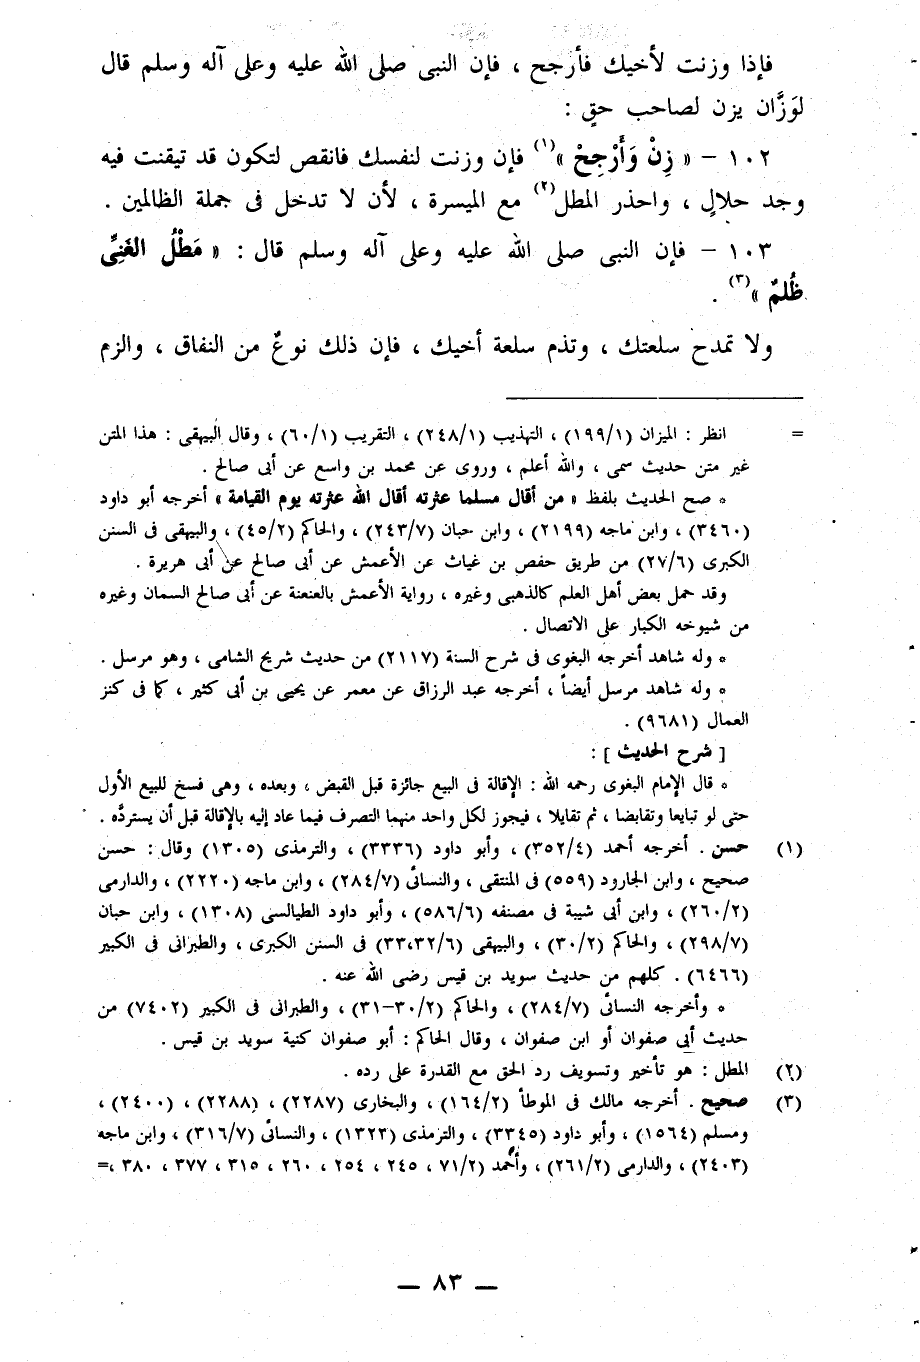 فإذا وزنت لأخيك فأرجح ، فإن النبى صلى الله عليه وعلى آله وسلم قال
لوَزَّان يزن لصاحب حقٍ :
١٠٢ – « زِنْ وَأَرْجِحْ »(١) فإن وزنت لنفسك فانقص لتكون قد تيقنت فيه
وجد حلالٍ ، واحذر المطل(٢) مع الميسرة ، لأن لا تدخل فى جملة الظالمين .
١٠٣ – فإن النبى صلى الله عليه وعلى آله وسلم قال : « مَطْلُ الغَنِىِّ
ظُلمٌ »(٣) .
ولا تمدح سلعتك ، وتذم سلعة أخيك ، فإن ذلك نوعٌ من النفاق ، والزم
= انظر : الميزان (١٩٩/١) ، التهذيب (٢٤٨/١) ، التقريب (٦٠/١) ، وقال البيهقى : هذا المتن
غير متن حديث سمى ، والله أعلم ، وروى عن محمد بن واسع عن أبى صالح .
* صح الحديث بلفظ « من أقال مسلما عثرته أقال الله عثرته يوم القيامة » أخرجه أبو داود
(٣٤٦٠) ، وابن ماجه (٢١٩٩) ، وابن حبان (٢٤٣/٧) ، والحاكم (٤٥/٢) ، والبيهقى فى السنن
الكبرى (٢٧/٦) من طريق حفص بن غياث عن الأعمش عن أبى صالح عن أبى هريرة .
وقد حمل بعض أهل العلم كالذهبى وغيره ، رواية الأعمش بالعنعنة عن أبى صالح السمان وغيره
من شيوخه الكبار على الاتصال .
* وله شاهد أخرجه البغوى فى شرح السنة (٢١١٧) من حديث شريح الشامى ، وهو مرسل .
* وله شاهد مرسل أيضاً ، أخرجه عبد الرزاق عن معمر عن يحيى بن أبى كثير ، كما فى كنز
العمال (٩٦٨١) .
[ شرح الحديث ] :
* قال الإمام البغوى رحمه الله : الإقالة فى البيع جائزة قبل القبض ، وبعده ، وهى فسخ للبيع الأول
حتى لو تبايعا وتقابضا ، ثم تقايلا ، فيجوز لكل واحد منهما التصرف فيما عاد إليه بالإقالة قبل أن يستردَّه .
(١) حسن . أخرجه أحمد (٣٥٢/٤) ، وأبو داود (٣٣٣٦) ، والترمذى (١٣٠٥) وقال : حسن
صحيح ، وابن الجارود (٥٥٩) فى المنتقى ، والنسائى (٢٨٤/٧) ، وابن ماجه (٢٢٢٠) ، والدارمى
(٢٦٠/٢) ، وابن أبى شيبة فى مصنفه (٥٨٦/٦) ، وأبو داود الطيالسى (١٣٠٨) ، وابن حبان
(٢٩٨/٧) ، والحاكم (٣٠/٢) ، والبيهقى (٣٣،٣٢/٦) فى السنن الكبرى ، والطبرانى فى الكبير
(٦٤٦٦) . كلهم من حديث سويد بن قيس رضى الله عنه .
* وأخرجه النسائى (٢٨٤/٧) ، والحاكم (٣٠/٢–٣١) ، والطبرانى فى الكبير (٧٤٠٢) من
حديث أبى صفوان أو ابن صفوان ، وقال الحاكم : أبو صفوان كنية سويد بن قيس .
(٢) المطل : هو تأخير وتسويف رد الحق مع القدرة على رده .
(٣) صحيح . أخرجه مالك فى الموطأ (١٦٤/٢) ، والبخارى (٢٢٨٧) ، (٢٢٨٨) ، (٢٤٠٠) ،
ومسلم (١٥٦٤) ، وأبو داود (٣٣٤٥) ، والترمذى (١٣٢٣) ، والنسائى (٣١٦/٧) ، وابن ماجه
(٢٤٠٣) ، والدارمى (٢٦١/٢) ، وأحمد (٧١/٢ ، ٢٤٥ ، ٢٥٤ ، ٢٦٠ ، ٣١٥ ، ٣٧٧ ، ٣٨٠ ،=
— ٨٣ —